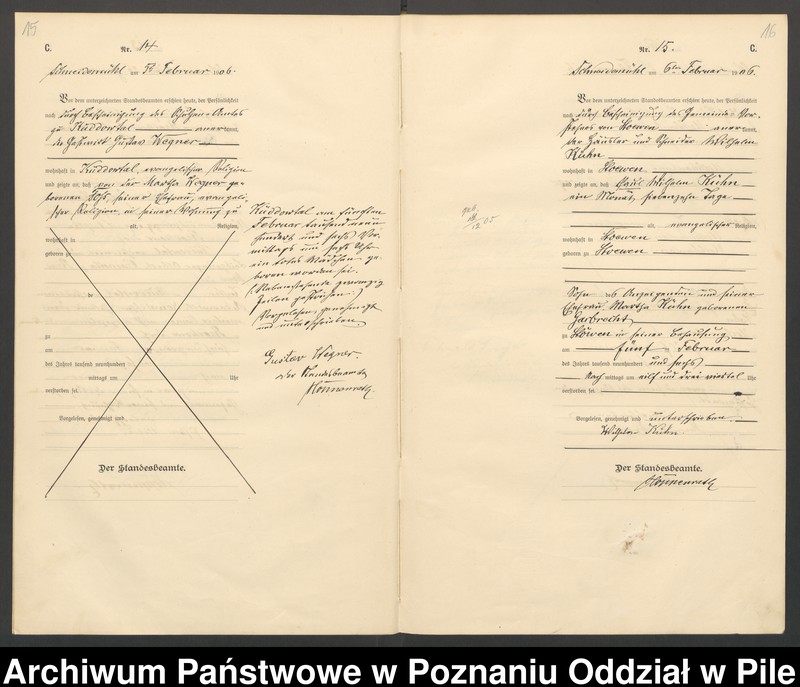 15
C.
Nr. 14
Schneidemühl am 5ten Februar 1906.
Vor dem unterzeichneten Standesbeamten erschien heute, der Persönlichkeit
nach durch Bescheinigung des Schulzen-Amtes
zu Küddowtal anerkannt,
der Gastwirt Gustav Wegner
wohnhaft in Küddowtal, evangelischer Religion
und zeigte an, daß von der Martha Wegner ge-
borenen seiner Ehefrau, evangeli-
scher Religion, in seiner Wohnung zu
alt, Religion,
wohnhaft in
geboren zu
de
zu
am
des Jahres tausend neunhundert
mittags um Uhr
verstorben sei.
Vorgelesen, genehmigt und
Der Standesbeamte.
Küddowtal am fünften
Februar tausend neun-
hundert und sechs Vor-
mittags um sechs Uhr
ein totes Mädchen ge-
boren worden sei.
Zeilen gestrichen.
Vorgelesen, genehmigt
und unterschrieben
Gustav Wegner.
Der Standesbeamte
Könnenrath
16
Nr. 15.
C.
Schneidemühl am 6ten Februar 1906.
Vor dem unterzeichneten Standesbeamten erschien heute, der Persönlichkeit
nach durch Bescheinigung des Gemeinde-Vor-
stehers von Stoewen anerkannt,
der Häusler und Schneider Wilhelm
Kuhn
wohnhaft in Stoewen
und zeigte an, daß Paul Wilhelm Kuhn
ein Monat, siebenzehn Tage
alt, evangelischer Religion,
wohnhaft in Stoewen
geboren zu Stoewen
Sohn des Anzeigenden und seiner
Ehefrau Martha Kuhn geborenen
Garbrecht
zu Stöwen in seiner Behausung
am fünf ten Februar
des Jahres tausend neunhundert und sechs
Nach mittags um elf und drei viertel Uhr
verstorben sei.
Vorgelesen, genehmigt und unterschrieben.
Wilhelm Kuhn
Der Standesbeamte.
Könnenrath
Archiwum Państwowe w Poznaniu Oddział w Pile